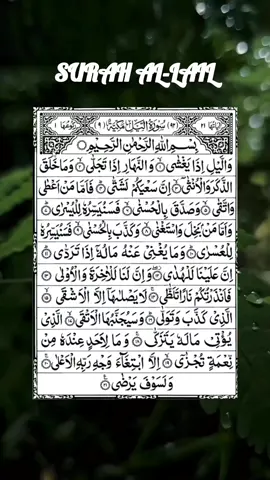 SURAH AL-LAIL
اٰيَاتُهَا ٢١ (٩٢) سُوْرَةُ الَّيْلِ مَكِّيَّةٌ (٩) رُكُوْعُهَا ١
بِسْمِ اللّٰهِ الرَّحْمٰنِ الرَّحِيْمِ
وَالَّيْلِ اِذَا يَغْشٰى وَالنَّهَارِ اِذَا تَجَلّٰى وَمَا خَلَقَ
الذَّكَرَ وَالْاُنْثٰٓى اِنَّ سَعْيَكُمْ لَشَتّٰى فَاَمَّا مَنْ اَعْطٰى
وَاتَّقٰى وَصَدَّقَ بِالْحُسْنٰى فَسَنُيَسِّرُهٗ لِلْيُسْرٰى
وَاَمَّا مَنْۢ بَخِلَ وَاسْتَغْنٰى وَكَذَّبَ بِالْحُسْنٰى فَسَنُيَسِّرُهٗ
لِلْعُسْرٰى وَمَا يُغْنِيْ عَنْهُ مَالُهٗٓ اِذَا تَرَدّٰى
اِنَّ عَلَيْنَا لَلْهُدٰى وَاِنَّ لَنَا لَلْاٰخِرَةَ وَالْاُوْلٰى
فَاَنْذَرْتُكُمْ نَارًا تَلَظّٰى لَا يَصْلٰىهَآ اِلَّا الْاَشْقَى
الَّذِيْ كَذَّبَ وَتَوَلّٰى وَسَيُجَنَّبُهَا الْاَتْقَى الَّذِيْ
يُؤْتِيْ مَالَهٗ يَتَزَكّٰى وَمَا لِاَحَدٍ عِنْدَهٗ مِنْ
نِّعْمَةٍ تُجْزٰٓى اِلَّا ابْتِغَآءَ وَجْهِ رَبِّهِ الْاَعْلٰى
وَلَسَوْفَ يَرْضٰى